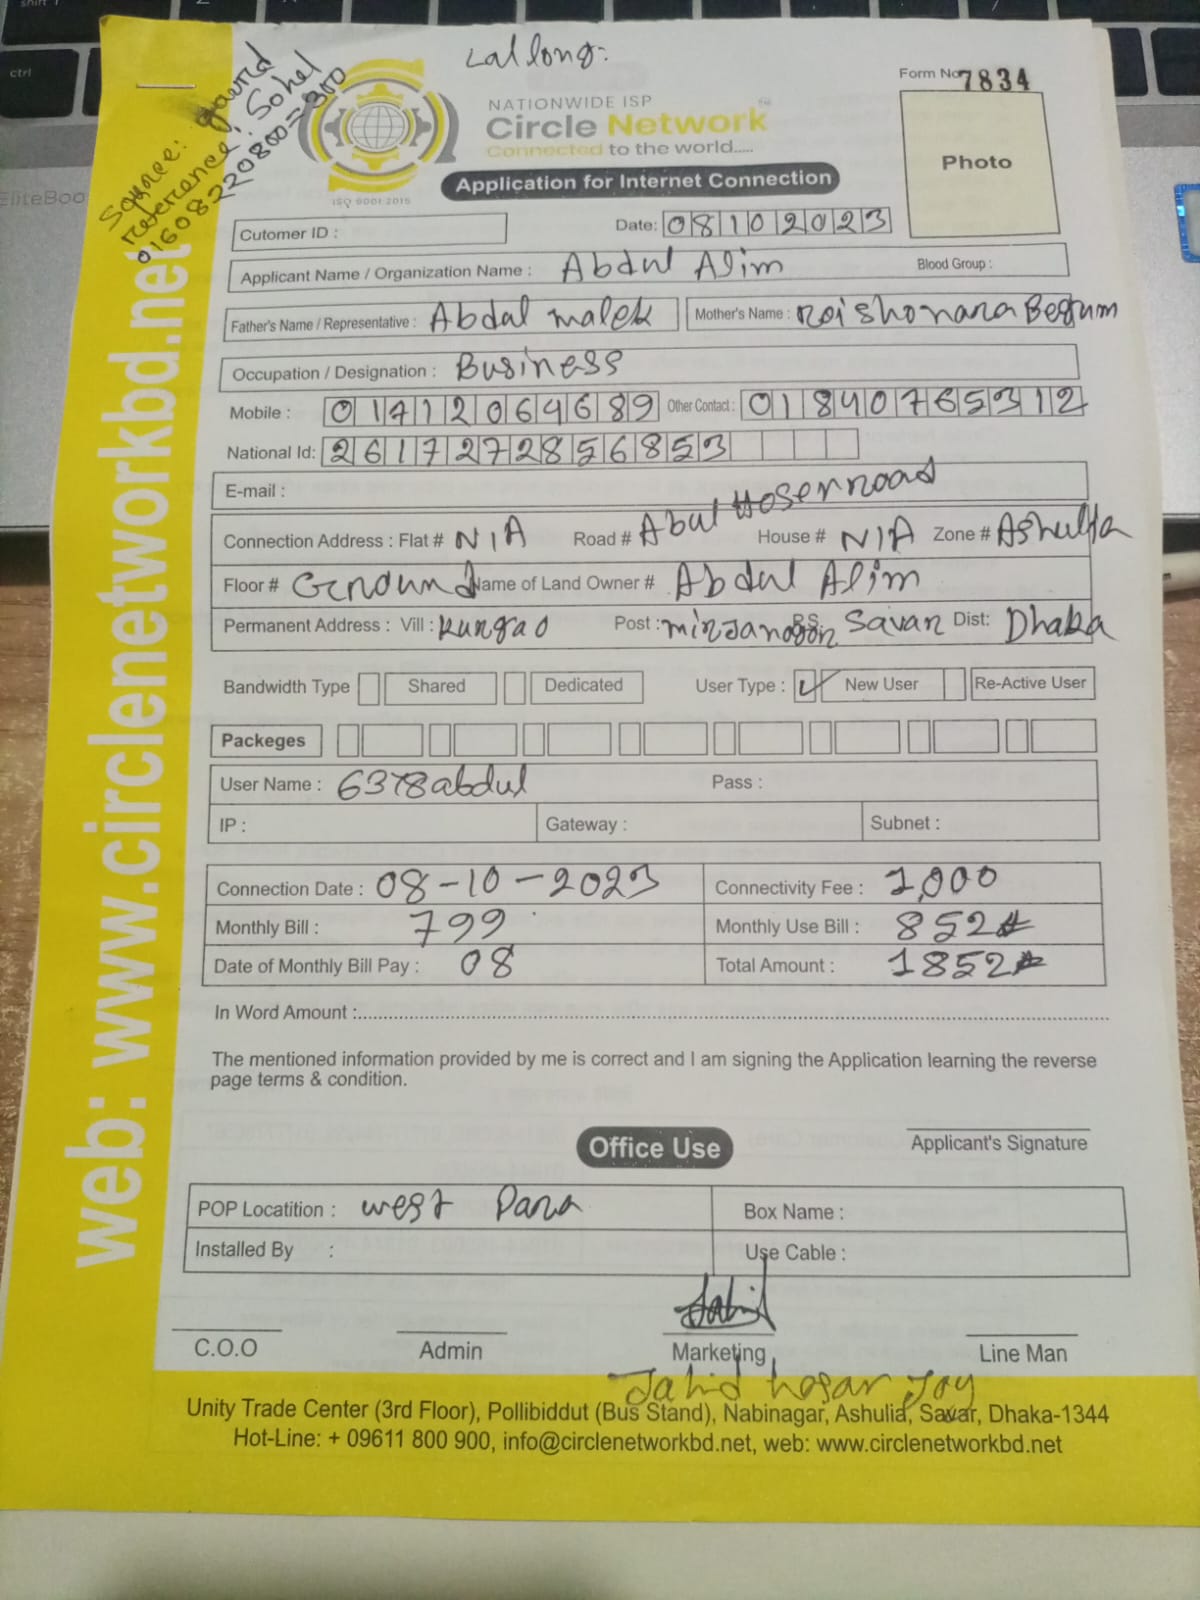 Lal long:
Source: gaurd
reference: Sohel
01608220800=300
Form No 7834
NATIONWIDE ISP
Circle Network
Connected to the world.....
ISO 9001:2015
Photo
Application for Internet Connection
Cutomer ID : Date: 08102023
Applicant Name / Organization Name : Abdul Alim Blood Group :
Father's Name / Representative : Abdal malek Mother's Name : Roishonara Begum
Occupation / Designation : Business
Mobile : 01712064689 Other Contact : 01840765312
National Id: 2617272856853
E-mail :
Connection Address : Flat # N/A Road # Abul Hosen road House # N/A Zone # Ashulia
Floor # Ground Name of Land Owner # Abdul Alim
Permanent Address : Vill : Kungao Post : P.S: Savar Dist: Dhaka
Bandwidth Type Shared Dedicated User Type : New User Re-Active User
Packeges
User Name : 6378abdul Pass :
IP : Gateway : Subnet :
Connection Date : 08-10-2023 Connectivity Fee : 1,000
Monthly Bill : 799 Monthly Use Bill : 852
Date of Monthly Bill Pay : 08 Total Amount : 1852
In Word Amount :
The mentioned information provided by me is correct and I am signing the Application learning the reverse
page terms & condition.
Applicant's Signature
Office Use
POP Locatition : west Para Box Name :
Installed By : Use Cable :
C.O.O Admin Marketing Line Man
Jahid hosan Joy
Unity Trade Center (3rd Floor), Pollibiddut (Bus Stand), Nabinagar, Ashulia, Savar, Dhaka-1344
Hot-Line: + 09611 800 900, info@circlenetworkbd.net, web: www.circlenetworkbd.net
web: www.circlenetworkbd.net
EliteBoo
ctrl